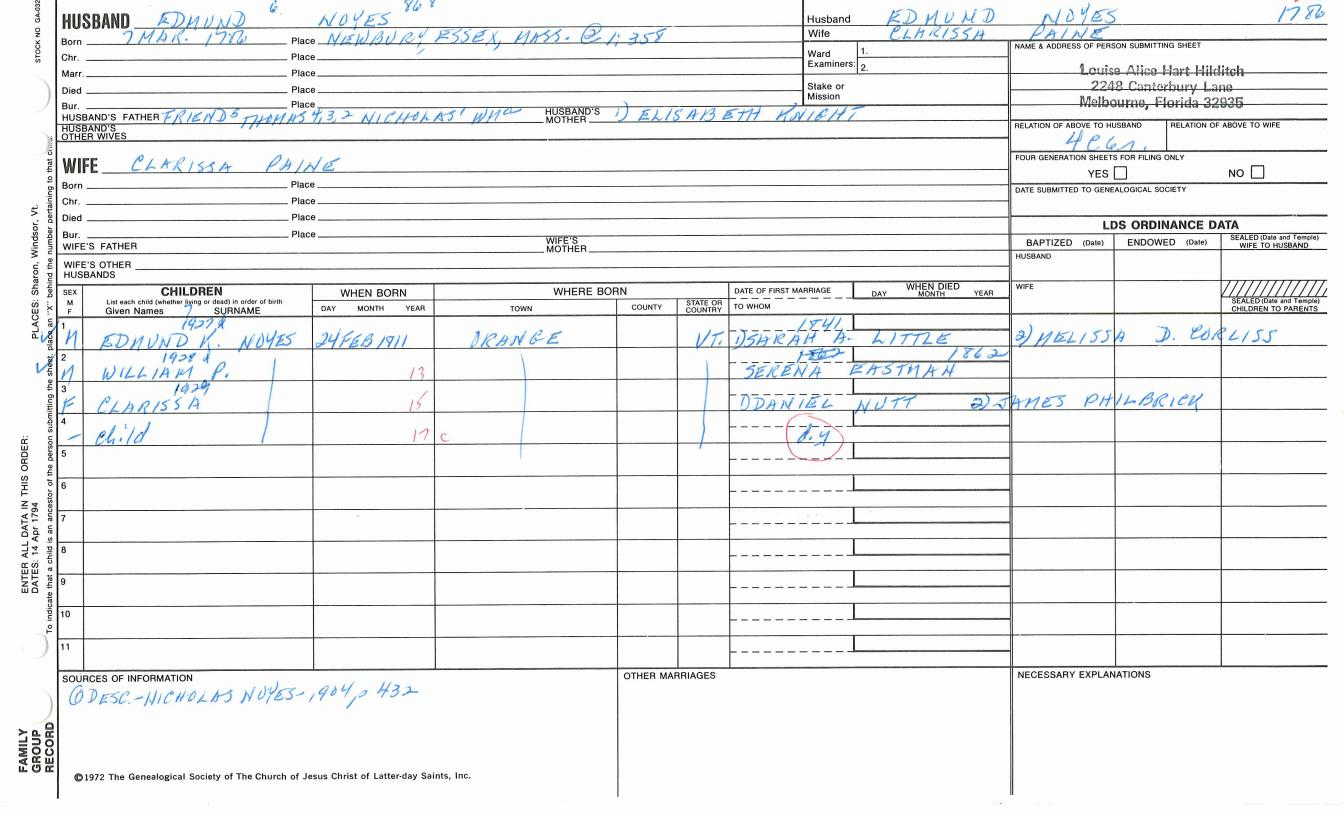 STOCK NO. GA-032
6 868
HUSBAND EDMUND NOYES
Born 7 MAR. 1786 Place NEWBURY, ESSEX, MASS. @ 1:358
Chr. Place
Marr. Place
Died Place
Bur. Place
HUSBAND'S FATHER FRIEND5 THOMAS4,3,2 NICHOLAS' Wm HUSBAND'S MOTHER 1) ELISABETH KNIGHT
HUSBAND'S OTHER WIVES
WIFE CLARISSA PAINE
Born Place
Chr. Place
Died Place
Bur. Place
WIFE'S FATHER WIFE'S MOTHER
WIFE'S OTHER HUSBANDS
Husband EDMUND NOYES 1786
Wife CLARISSA PAINE
Ward Examiners: 1.
2.
Stake or Mission
NAME & ADDRESS OF PERSON SUBMITTING SHEET
Louise Alice Hart Hilditch
2248 Canterbury Lane
Melbourne, Florida 32935
RELATION OF ABOVE TO HUSBAND RELATION OF ABOVE TO WIFE
FOUR GENERATION SHEETS FOR FILING ONLY
YES NO
DATE SUBMITTED TO GENEALOGICAL SOCIETY
LDS ORDINANCE DATA
BAPTIZED (Date) ENDOWED (Date) SEALED (Date and Temple) WIFE TO HUSBAND
HUSBAND
WIFE
SEALED (Date and Temple) CHILDREN TO PARENTS
SEX M F CHILDREN WHEN BORN WHERE BORN DATE OF FIRST MARRIAGE WHEN DIED
List each child (whether living or dead) in order of birth
Given Names SURNAME DAY MONTH YEAR TOWN COUNTY STATE OR COUNTRY TO WHOM DAY MONTH YEAR
1927 1841
1 M EDMUND K. NOYES 24 FEB 1911 ORANGE VT. 1) SARAH A. LITTLE 2) MELISSA D. CORLISS
1928 1862 1862
2 M WILLIAM P. 13 SERENA EASTMAN
1929
3 F CLARISSA 15 1) DANIEL NUTT 2) JAMES PHILBRICK
4 - Child 17 c d.y
5
6
7
8
9
10
11
SOURCES OF INFORMATION OTHER MARRIAGES NECESSARY EXPLANATIONS
① DESC.-NICHOLAS NOYES-1904, p 432
©1972 The Genealogical Society of The Church of Jesus Christ of Latter-day Saints, Inc.
FAMILY GROUP RECORD
ENTER ALL DATA IN THIS ORDER:
DATES: 14 Apr 1794 PLACES: Sharon, Windsor, Vt.
To indicate that a child is an ancestor of the person submitting the sheet, place an "X" behind the number pertaining to that child.